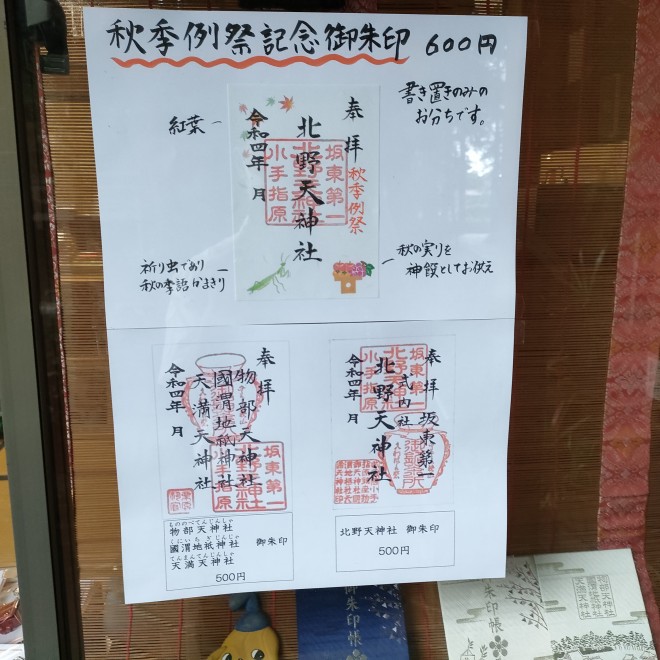 秋季例祭記念御朱印 600円
書き置きのみの
お分ちです。
紅葉
奉拝
秋季例祭
坂東第一
北野天神社
小手指原
令和四年 月
祈り虫であり
秋の季語かまきり
秋の実りを
神饌としてお供え
奉拝
物部天神社
國渭地祇神社
天満天神社
令和四年 月
坂東第一
北野天神社
小手指原
もののべてんじんしゃ
物部天神社
くにいちぎじんじゃ
國渭地祇神社
てんまんてんじんしゃ
天満天神社
御朱印
500円
奉拝
坂東第一
式内社
北野天神社
令和四年 月
坂東第一
小手指原
北野天神社 御朱印
500円
御朱印帳
御朱印帳
物部天神社
國渭地祇神社
天満天神社